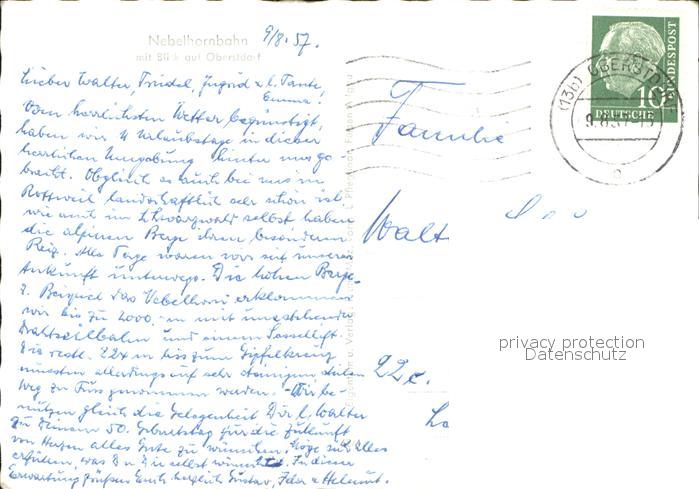 Nebelhornbahn 9/8.57.
mit Blick auf Oberstdorf
Lieber Walter, Friedel, Ingrid u. l. Tante
Emma!
Vom herrlichsten Wetter begünstigt,
haben wir 4 Urlaubstage in dieser
herrlichen Umgebung hinter uns ge
bracht. Obgleich es auch bei uns in
Rottweil landschaftlich sehr schön ist,
wie auch im Schwarzwald selbst, haben
die alpinen Berge ihren besonderen
Reiz. Alle Tage waren wir seit unserer
Ankunft unterwegs. Die hohen Berge
z. Beispiel das Nebelhorn erklommen
wir bis zu 2000 m mit umstehender
Drahtseilbahn und einem Sessellift.
Die restl. 224 m bis zum Gipfelkreuz
mussten allerdings auf sehr steinigem
Weg zu Fuss genommen werden. Wir be-
nützen gleich die Gelegenheit Dir l. Walter
zu Deinem 50. Geburtstag für die Zukunft
von Herzen alles Gute zu wünschen. Möge sich alles
erfüllen, was Du Dir selbst wünschst. In dieser
Erwartung grüßen Euch herzlich Gustav, Ida u. Helmut.
Familie
Walt
22c.
(13b) OBERSTDORF
9.8.57-15
DEUTSCHE BUNDESPOST
10
privacy protection
Datenschutz